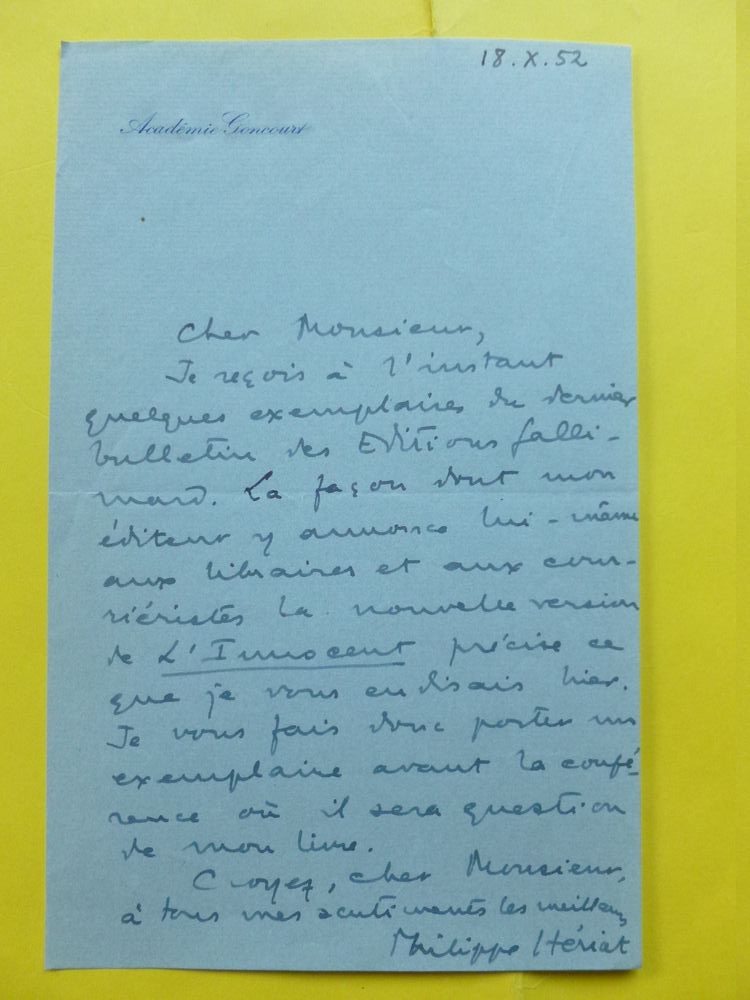 18.X.52
Académie Goncourt
Cher Monsieur,
Je reçois à l'instant
quelques exemplaires du dernier
bulletin des Editions Galli-
mard. La façon dont mon
éditeur y annonce lui-même
aux libraires et aux cour-
riéristes la nouvelle version
de L'Innocent précise ce
que je vous en disais hier.
Je vous fais donc porter un
exemplaire avant la confé-
rence où il sera question
de mon livre.
Croyez, cher Monsieur,
à tous mes sentiments les meilleurs
Philippe Hériat